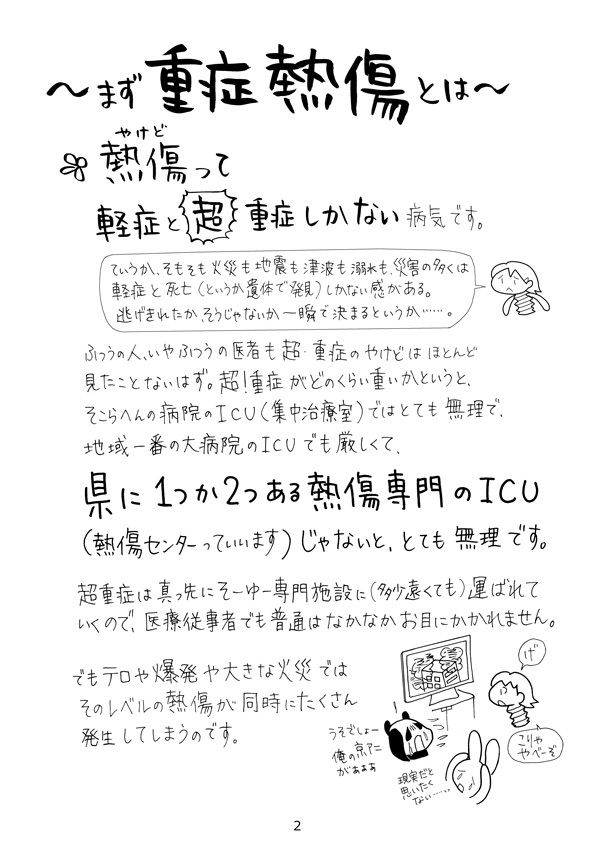 ～まず重症熱傷とは～
やけど
熱傷って
軽症と超重症しかない病気です。
ていうか、そもそも火災も地震も津波も溺れも、災害の多くは
軽症と死亡(というか遺体で発見)しかない感がある。
逃げきれたか、そうじゃないか 一瞬で決まるというか……。
ふつうの人、いやふつうの医者も超・重症のやけどはほとんど
見たことないはず。超!重症がどのくらい重いかというと、
そこらへんの病院のICU(集中治療室)ではとても無理で、
地域一番の大病院のICUでも厳しくて、
県に1つか2つある熱傷専門のICU
(熱傷センターっていいます)じゃないと、とても無理です。
超重症は真っ先にそーゆー専門施設に(多少遠くても)運ばれて
いくので、医療従事者でも普通はなかなかお目にかかれません。
でもテロや爆発や大きな火災では
そのレベルの熱傷が同時にたくさん
発生してしまうのです。
げ
こりゃ
やべーぞ
うそでしょー
俺の京アニ
がぁぁぁ
現実だと
思いたく
ない……
2